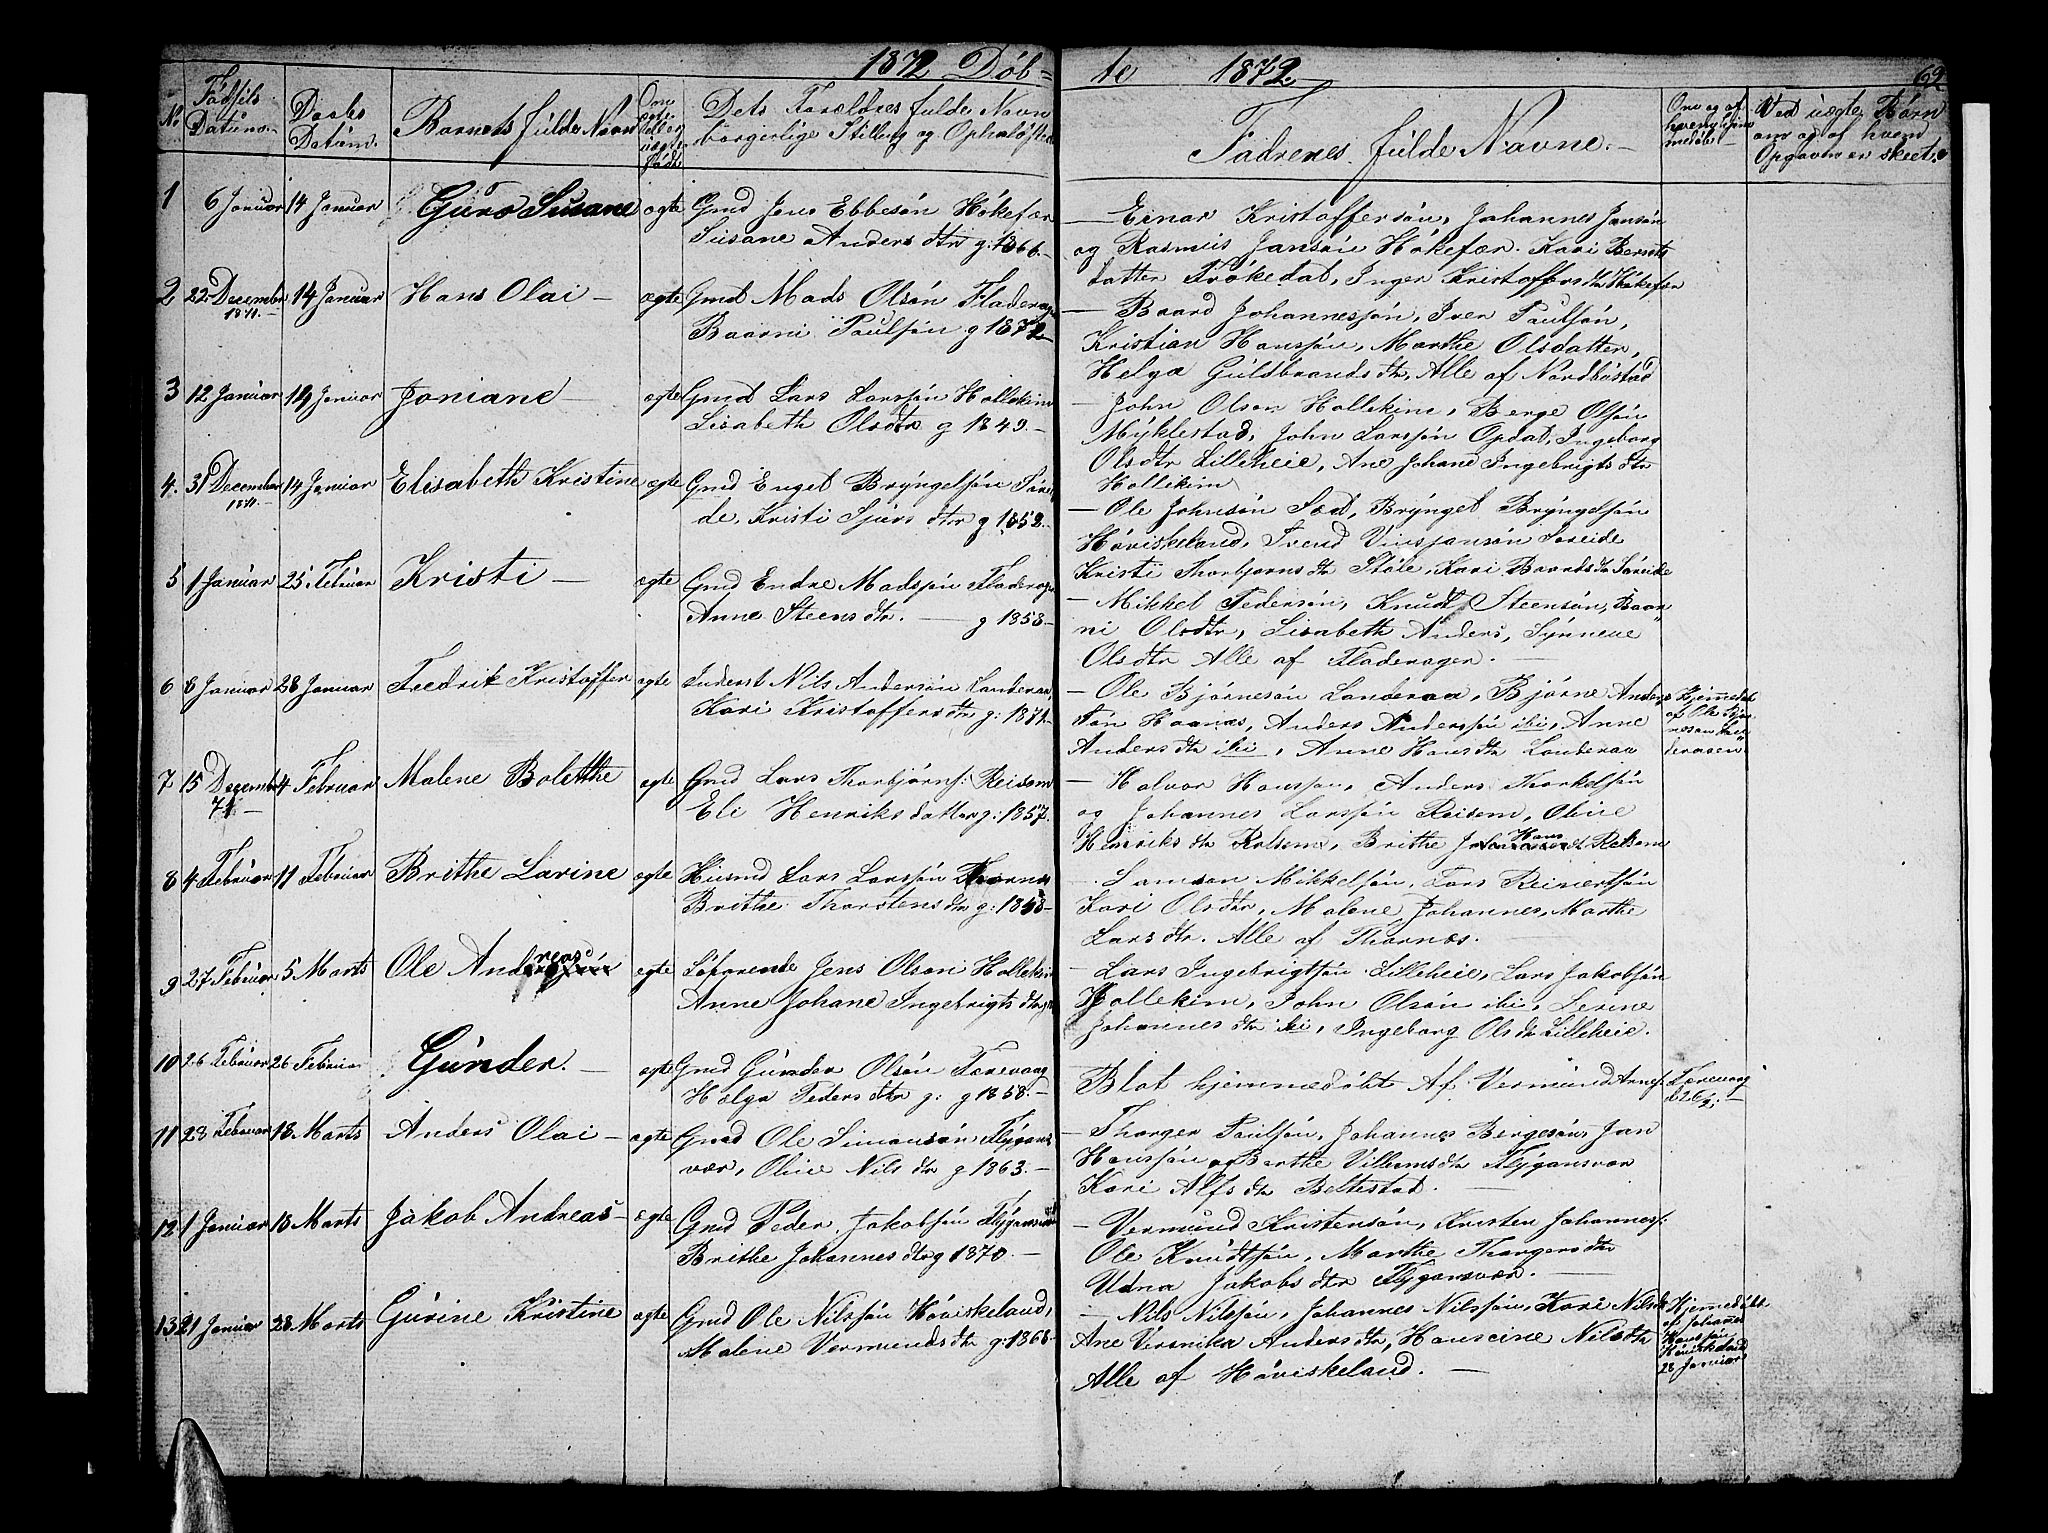 1872 Döb=
te 1872
62
No
Fødsels
Datum.
Daabs
Datum.
Barnets fulde Navn
Om
ægte
eller
uægte
født
Dets Forældres fulde Navn
borgerlige Stilling og Opholdsted
Fadrenes fulde Navne.
Om og af
hvem hjem
medöbt
Ved uægte Börn
om og af hvem
Opgaven er skeet.
1 6 Januar 14 Januar Guro Susane ægte Gmd Jens Ebbesön Hökefær
Susane Anders dtr g: 1866.
— Einar Kristoffersön, Johannes Jansön
og Rasmus Jansön Hökefær. Kari Bernts
datter Trökedal, Inger Kristoffers dtr Hökefær
2 22 December 14 Januar Hans Olai — ægte Gmd Mads Olsön Fladerager
1871.
Baarni Paulsön g 1872
— Baard Johannessön, Iver Paulsön,
Kristian Hanssön, Marthe Olsdatter,
Helga Guldbrands dtr, Alle af Nordbustad
3 12 Januar 14 Januar Joniane — ægte Gmd Lars Larssön Hollekim
Lisabeth Olsdtr g 1849.
— John Olson Hollekim, Berge Olsön
Myklestad, John Larssön Opdal, Ingeborg
Olsdtr Lilleheie, Ane Johane Ingebrigts dtr
Hollekim
4. 31 December 14 Januar Elisabeth Kristine ægte Gmd Engel Bryngelsön Sörei
1871.
de, Kristi Sjurs dtr g 1858.
— Ole Johnsön Sæd, Brynget Bryngelsön
Höviskeland, Svend Vinsjansön Söreide
Kristi Thorbjørns dtr Støle, Kari Baards dtr Söreide
5 1 Januar 25 Februar Kristi — ægte Gmd Endre Madssön Fladerager
Anne Steens dtr. — g 1858
— Mikkel Pedersön, Knudt Steensön, Baar
ni Olsdtr, Lisabeth Anders, Synneve
Olsdtr Alle af Fladerager.
6 8 Januar 28 Januar Fredrik Kristoffer ægte Inderst Nils Andersön Landeraa
Kari Kristoffers dtr g: 1871
— Ole Björnesön Landeraa, Björne Anders
sön Haanæs, Anders Anderssön ibi, Anne
Anders dtr ibi, Anne Hans dtr Landeraa
Hjemmedöb
af Ole Björ
nesön Lan
deraaen
7 15 December 4 Februar Malene Bolette ægte Gmd Lars Thorbjörns: Reisem
71
Eli Henriks datter g: 1857.
— Halvor Hanssön, Anders Thorkelsön
og Johannes Larssön Reisem, Oline
Henriks dtr Rolsem, Brithe Hans dtr Reksem
8 4 Februar 11 Februar Brithe Larine ægte Husmd Lars Larssön Thornæs
Brithe Thorstens dtr g: 1858
— Samson Mikkelsön, Lars Reinertsön
Kari Olsdtr, Malene Johannes, Marthe
Lars dtr. Alle af Thornæs.
9 27 Februar 5 Marts Ole Andreas ægte Söfarende Jens Olson Hollekim
Anne Johane Ingebrigts dtr
— Lars Ingebrigtsön Lilleheie, Lars Jakobsön
Hollekim, John Olsön ibi, Serine
Johannes dtr ibi, Ingeborg Ols dtr Lilleheie.
10 26 Februar 26 Februar Gunder. — ægte Gmd Gunder Olsön Færevaag
Helga Peders dtr g: g 1858.
Blot hjemmedöbt Af Vermund Arnes: Færevaag
d 26/2
11 28 Februar 18 Marts Anders Olai — ægte Gmd Ole Simonsön Flygans
vær, Oline Nils dtr g 1863.
— Thorger Paulsön, Johannes Bergesön, Jan
Hanssön og Berthe Villums dtr Flygansvær
Kari Alfs dtr Beltestad.
12 1 Januar 18 Marts Jakob Andreas — ægte Gmd Peder Jakobsön Flygansvær
Brithe Johannes dtr g 1870.
— Vermund Kristensön, Kristen Johannes:
Ole Knudtsön, Marthe Thorgers dtr
Udna Jakobs dtr Flygansvær.
13 21 Januar 28 Marts Gurine Kristine ægte Gmd Ole Nilssön Höviskeland,
Malene Vermunds dtr g: 1868
— Nils Nilssön, Johannes Nilssön, Kari Nils dtr
Ane Veronika Anders dtr, Hanseine Nilsdtr
Alle af Höviskeland.
Hjemedöbt
af Johannes
Hanssön
Höviskeland
28 Januar